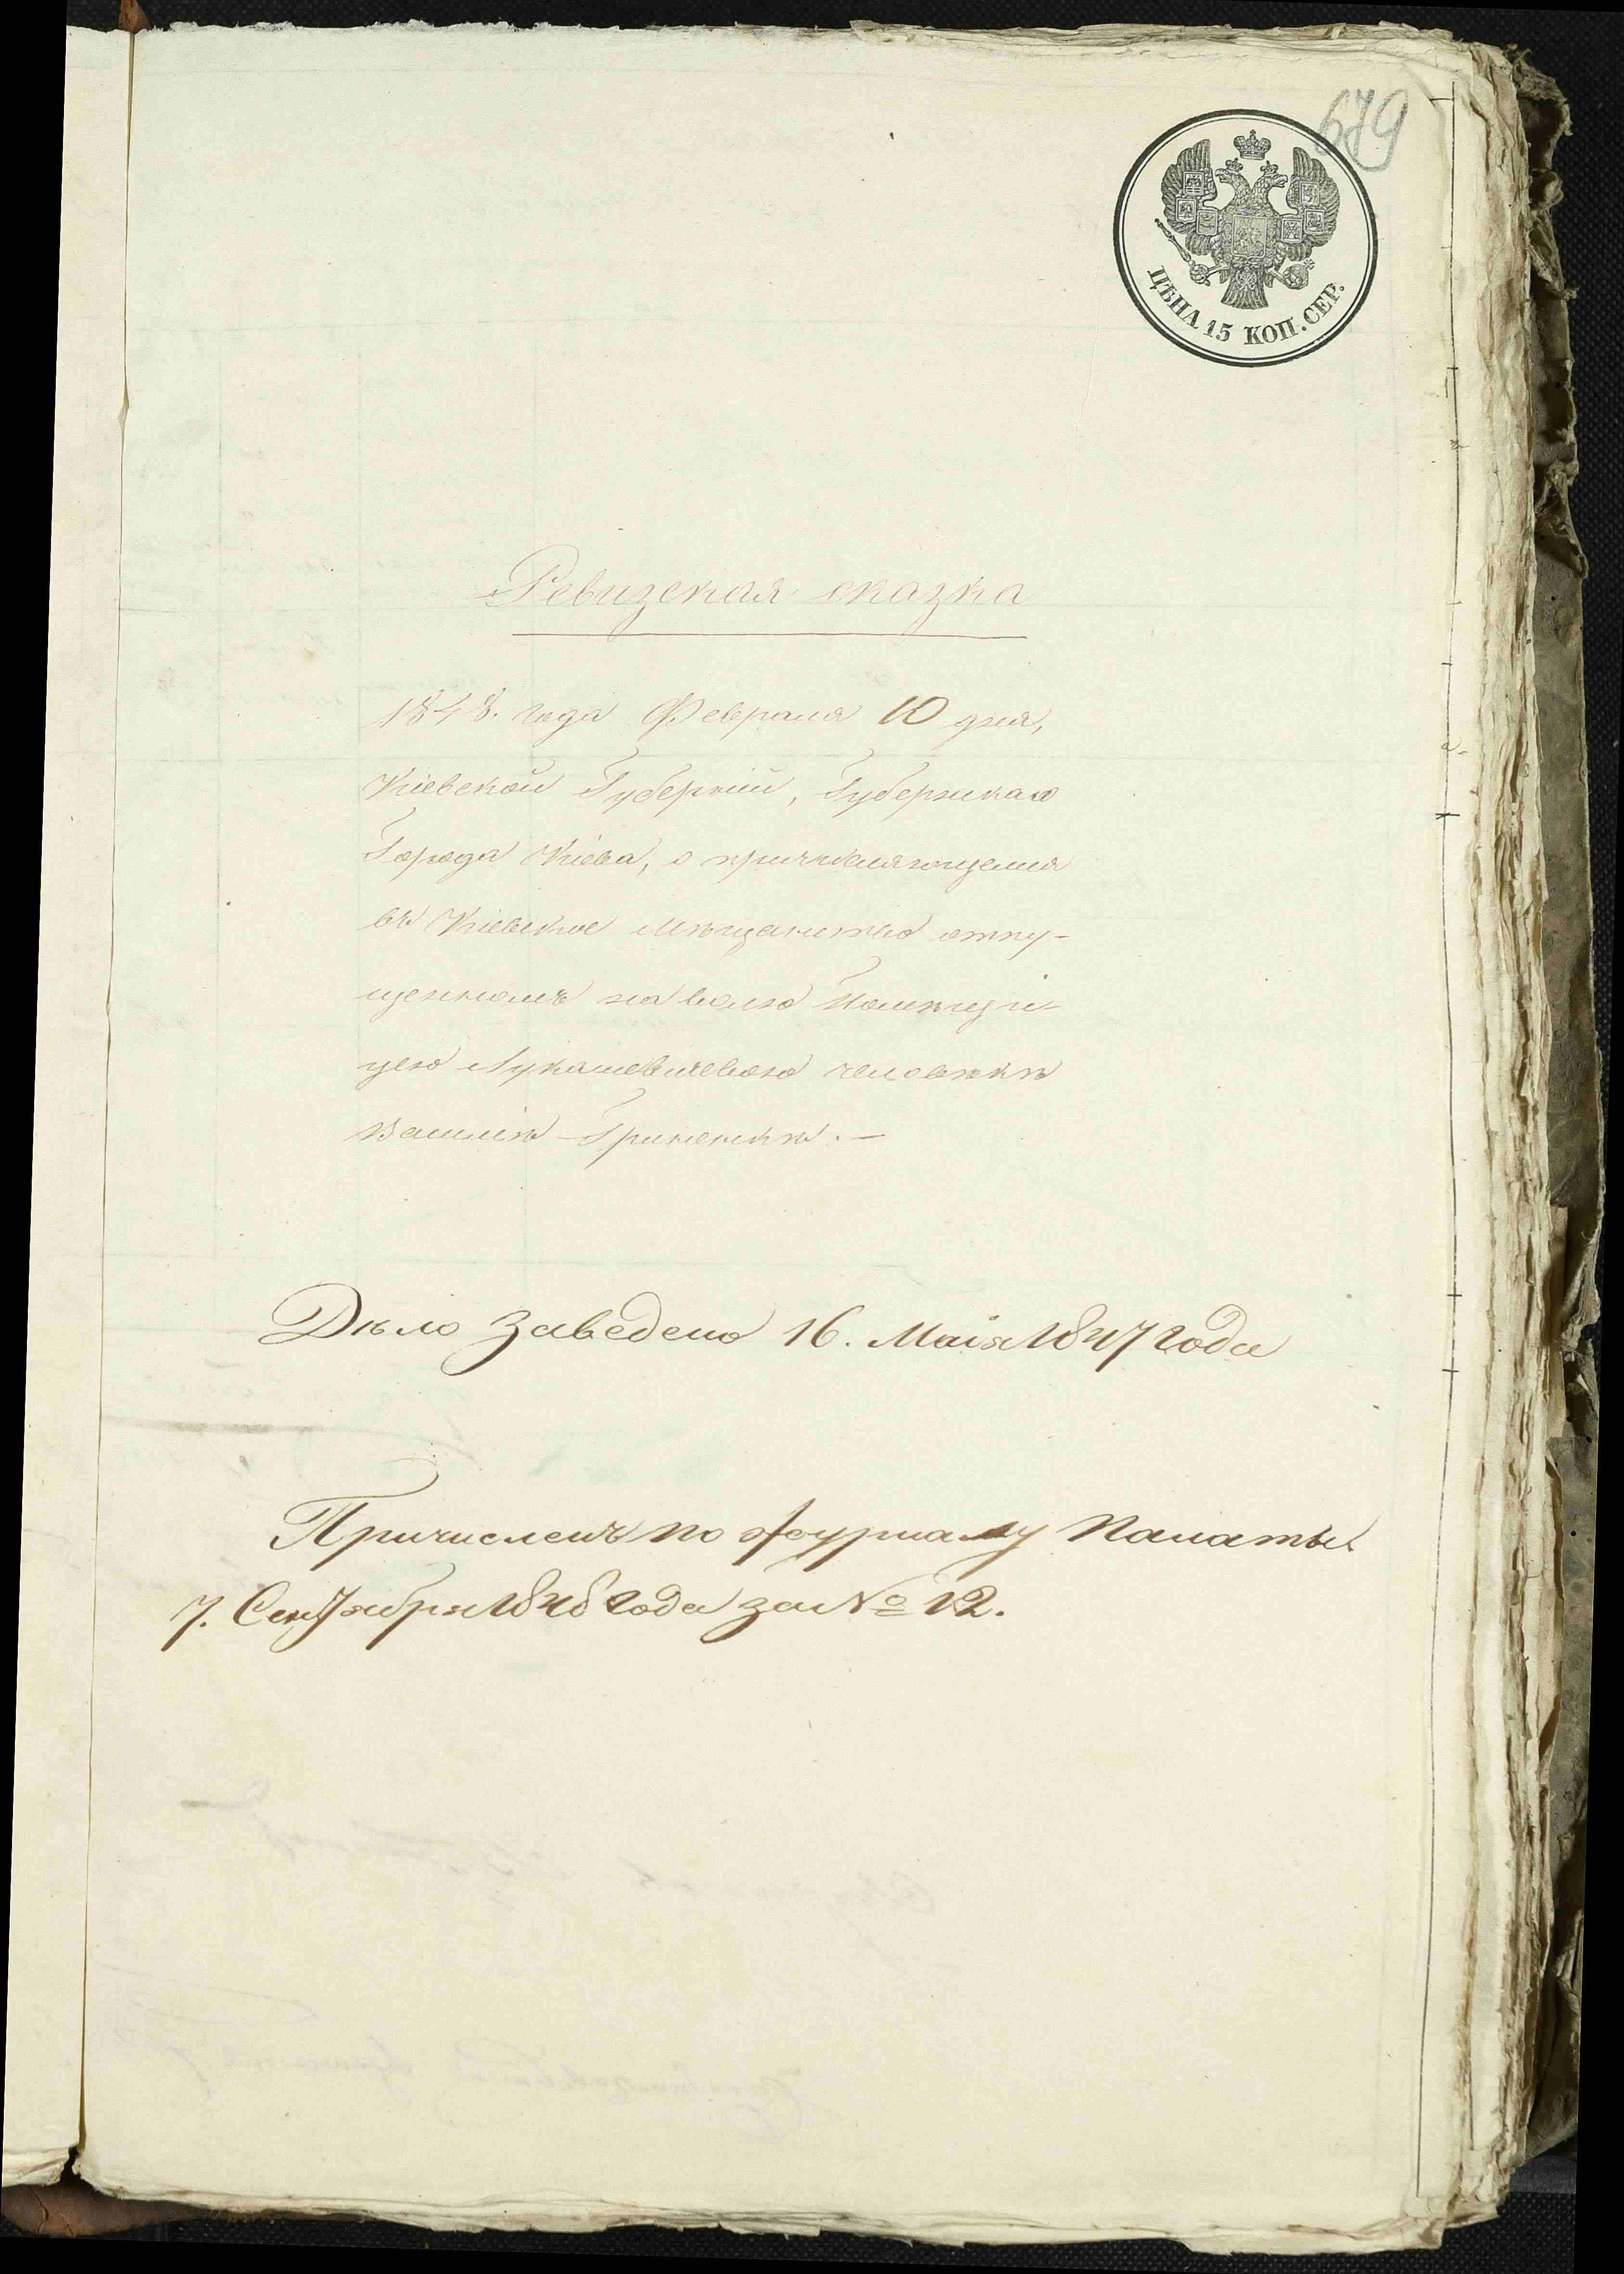 679
ЦѢНА 15 КОП. СЕР.
Ревизская сказка
1848. года Февраля 10 дня,
Кіевской Губерніи, Губернскаго
Города Кіева, о причисляющемся
въ Кіевское Мѣщанство отпу-
щенномъ на волю Помѣщи-
цею Лукашевичевою человѣкѣ
Василіѣ Гриненкѣ. —
Дѣло Заведено 16. Маія 1847 года
Причисленъ по журналу Палаты
7. Сентября 1848 года за № 12.